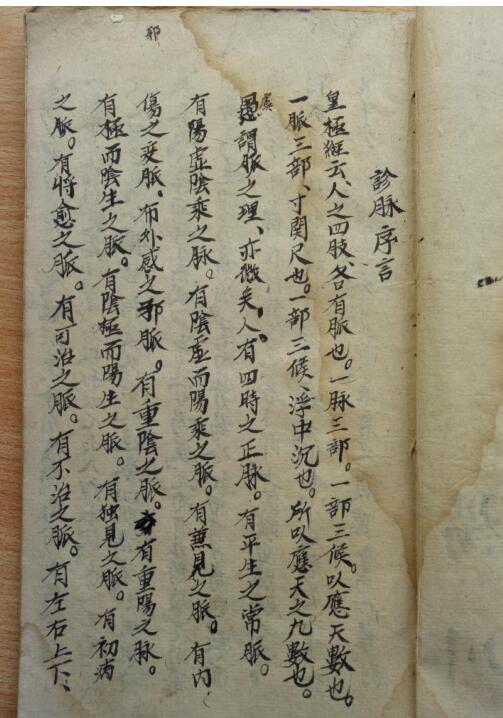 診脉序言
皇極經云、人之四肢、各有脈也。一脉三部。一部三候。以應天數也。
一脈三部、寸関尺也。一部三候、浮中沉也。所以應天之九數也。
愚謂脈之理、亦微矣、人有四時之正脉。有平生之常脈。
有陽虚陰乘之脉。有陰虚而陽乘之脈。有兼見之脈。有内
傷之变脈。布外感之邪脈。有重陰之脈。有重陽之脉。
有極而陰生之脈。有陰極而陽生之脈。有独見之脈。有初病
之脈。有将愈之脈。有可治之脈。有不治之脈。有左右上下、
邪